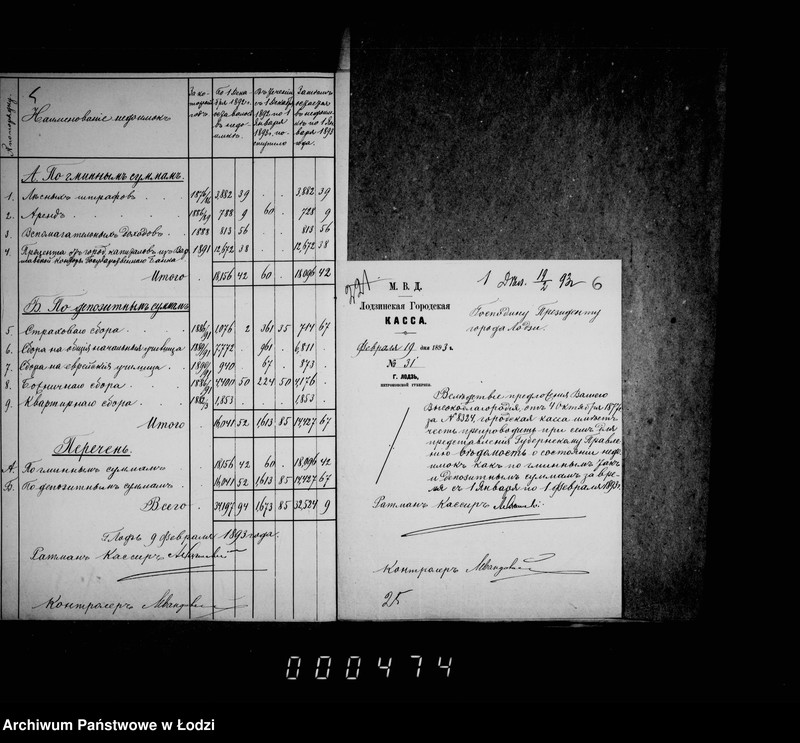 № по порядку.
Наименованіе недоимокъ
За который годъ.
По 1 Января 1892 г. оставалось въ недоимкѣ.
Въ теченіи съ 1 Декабря 1892 по 1 Января 1893 г. поступило
Затѣмъ остается въ недоимкѣ по 1 Января 1893 года.
А. По гминнымъ суммамъ.
1. Лѣсныхъ штрафовъ . . 3,882 39 . . 3,882 39
2. Арендъ . . . 788 9 60 . 728 9
3. Вспомагательныхъ доходовъ . 1888 813 56 . . 813 56
4. Процента отъ город. капиталовъ изъ Варшавской Конторы Государственнаго Банка 1891 12,672 38 . . 12,672 38
Итого . 18,156 42 60 . 18,096 42
Б. По депозитнымъ суммамъ
5. Страховаго сбора . . . 1,076 2 361 35 714 67
6. Сбора на общія начальныя училища 7,772 . 961 . 6,811 .
7. Сбора на еврейскія училища . . 940 . 67 . 873 .
8. Больничнаго сбора . . . 4400 50 224 50 4176 .
9. Квартирнаго сбора . . . 1,853 . . . 1,853 .
Итого . 16,041 52 1613 85 14,427 67
Перечень.
А. По гминнымъ суммамъ . 18,156 42 60 . 18,096 42
Б. По депозитнымъ суммамъ . 16,041 52 1613 85 14,427 67
Всего . 34,197 94 1673 85 32,524 9
9 Февраля 1893 года.
Ратманъ Кассиръ
Контролеръ
221
М. В. Д.
Лодзинская Городская
КАССА.
Февраля 19 дня 1893 г.
№ 31
Г. ЛОДЗЬ,
ПЕТРОКОВСКОЙ ГУБЕРНІИ.
1 19/2 93 г 6
Господину Президенту
города Лодзи.
Вслѣдствіе предложенія Вашего
Высокоблагородія, отъ 4 Октября 1877 г.
за № 8324, городская касса имѣетъ
честь препроводить при семъ для
представленія Губернскому Правле-
нію вѣдомость о состояніи недо-
имокъ какъ по гминнымъ такъ
и депозитнымъ суммамъ за вре-
мя съ 1 Января по 1 Февраля 1893 г.
Ратманъ Кассиръ
Контролеръ
25
000474
Archiwum Państwowe w Łodzi